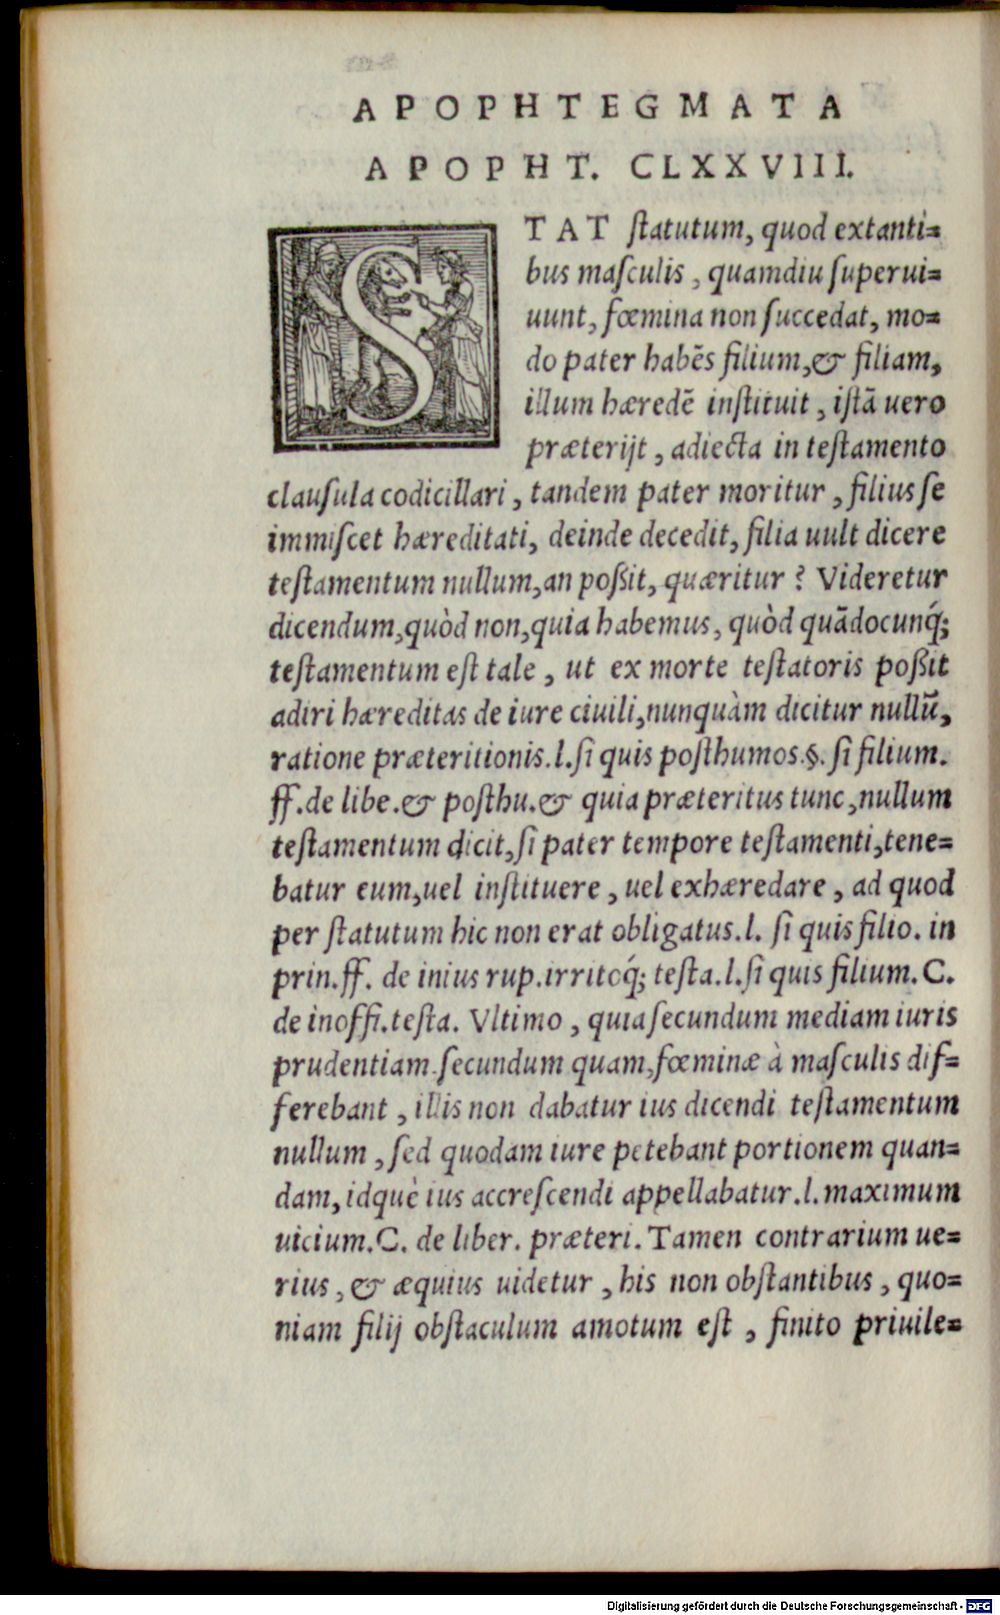 APOPHTEGMATA
APOPHT. CLXXVIII.
STAT ſtatutum, quod extanti=
bus maſculis, quamdiu ſuperui=
uunt, fœmina non ſuccedat, mo=
do pater habẽs filium, & filiam,
illum hæredẽ inſtituit, iſtã uero
præterijt, adiecta in teſtamento
clauſula codicillari, tandem pater moritur, filius ſe
immiſcet hæreditati, deinde decedit, filia uult dicere
teſtamentum nullum, an poßit, quæritur? Videretur
dicendum, quòd non, quia habemus, quòd quãdocunq́;
teſtamentum eſt tale, ut ex morte teſtatoris poßit
adiri hæreditas de iure ciuili, nunquàm dicitur nullũ,
ratione præteritionis. l. ſi quis poſthumos. §. ſi filium.
ff. de libe. & poſthu. & quia præteritus tunc, nullum
teſtamentum dicit, ſi pater tempore teſtamenti, tene=
batur eum, uel inſtituere, uel exhæredare, ad quod
per ſtatutum hic non erat obligatus. l. ſi quis filio. in
prin. ff. de inius rup. irritoq́; teſta. l. ſi quis filium. C.
de inoffi. teſta. Vltimo, quia ſecundum mediam iuris
prudentiam. ſecundum quam, fœminæ à maſculis dif=
ferebant, illis non dabatur ius dicendi teſtamentum
nullum, ſed quodam iure petebant portionem quan=
dam, idquè ius accreſcendi appellabatur. l. maximum
uicium. C. de liber. præteri. Tamen contrarium ue=
rius, & æquius uidetur, his non obſtantibus, quo=
niam filij obſtaculum amotum eſt, finito priuile=
Digitalisierung gefördert durch die Deutsche Forschungsgemeinschaft - DFG